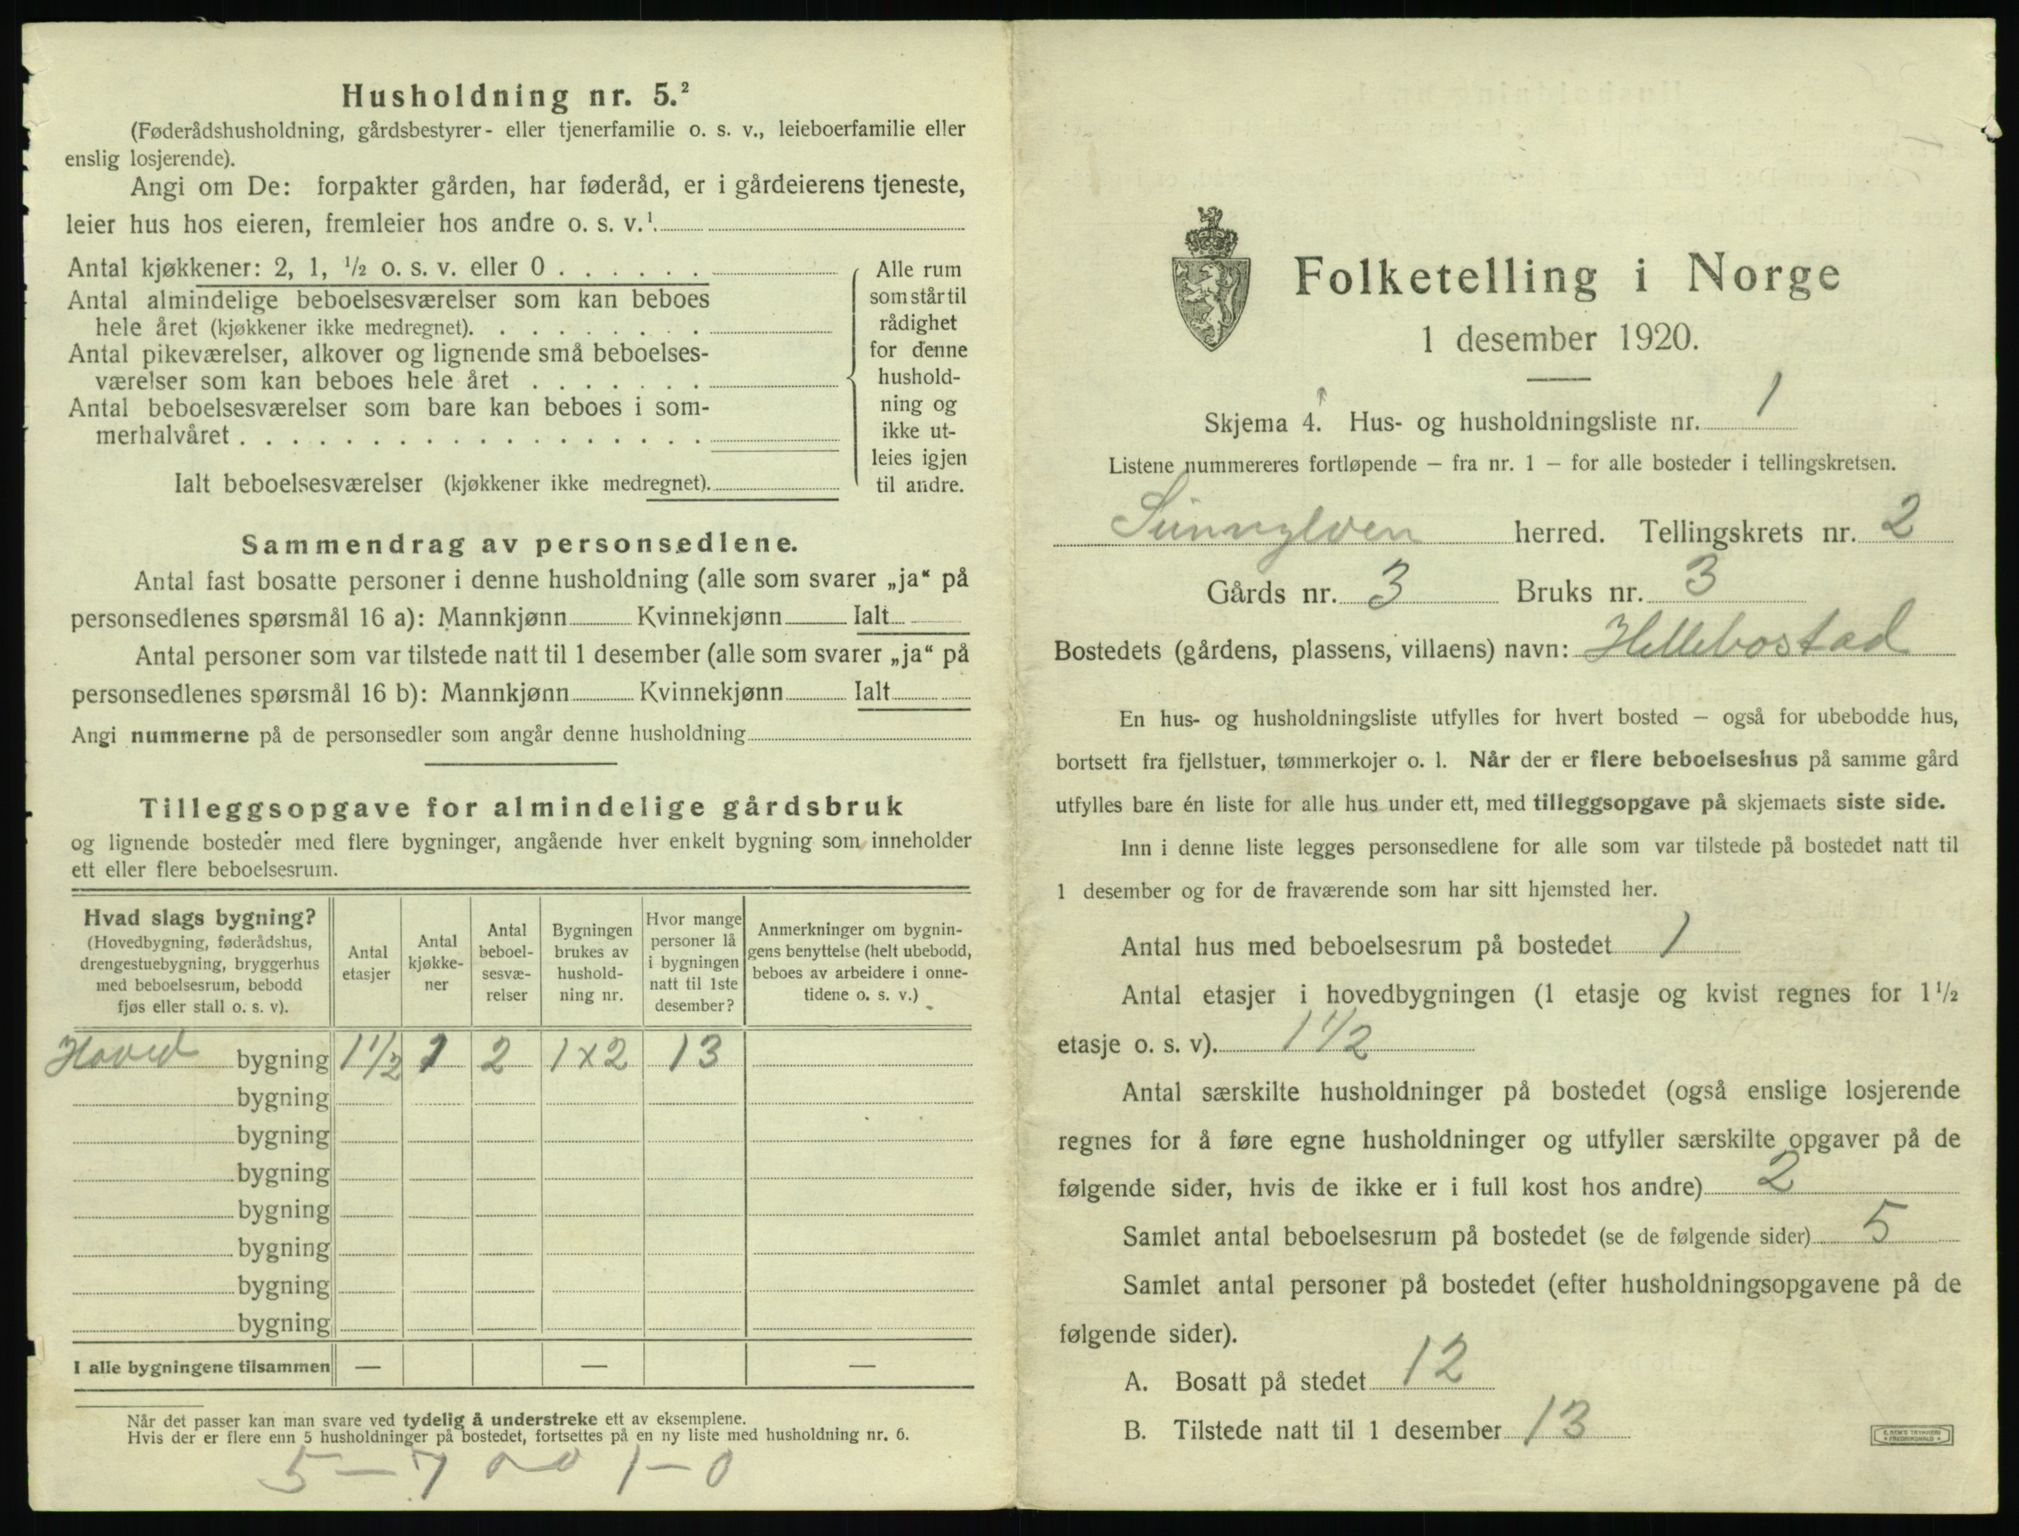 Husholdning nr. 5.²
(Føderådshusholdning, gårdsbestyrer- eller tjenerfamilie o. s. v., leieboerfamilie eller
enslig losjerende).
Angi om De: forpakter gården, har føderåd, er i gårdeierens tjeneste,
leier hus hos eieren, fremleier hos andre o. s. v.¹
Antal kjøkkener: 2, 1, ½ o. s. v. eller 0 . . . . . .
Antal almindelige beboelsesværelser som kan beboes
hele året (kjøkkener ikke medregnet). . . . . . . . .
Antal pikeværelser, alkover og lignende små beboelses-
værelser som kan beboes hele året . . . . . . .
Antal beboelsesværelser som bare kan beboes i som-
merhalvåret . . . . . . . . . . . . . . . . . .
Ialt beboelsesværelser (kjøkkener ikke medregnet).
Alle rum
som står til
rådighet
for denne
hushold-
ning og
ikke ut-
leies igjen
til andre.
Sammendrag av personsedlene.
Antal fast bosatte personer i denne husholdning (alle som svarer „ja“ på
personsedlenes spørsmål 16 a): Mannkjønn Kvinnekjønn Ialt
Antal personer som var tilstede natt til 1 desember (alle som svarer „ja“ på
personsedlenes spørsmål 16 b): Mannkjønn Kvinnekjønn Ialt
Angi nummerne på de personsedler som angår denne husholdning
Tilleggsopgave for almindelige gårdsbruk
og lignende bosteder med flere bygninger, angående hver enkelt bygning som inneholder
ett eller flere beboelsesrum.
Hvad slags bygning?
(Hovedbygning, føderådshus,
drengestuebygning, bryggerhus
med beboelsesrum, bebodd
fjøs eller stall o. s. v).
Antal
etasjer
Antal
kjøkke-
ner
Antal
beboel-
sesvæ-
relser
Bygningen
brukes av
hushold-
ning nr.
Hvor mange
personer lå
i bygningen
natt til 1ste
desember?
Anmerkninger om bygnin-
gens benyttelse (helt ubebodd,
beboes av arbeidere i onne-
tidene o. s. v.)
Hoved bygning 1 1/2 1 2 1×2 13
bygning
bygning
bygning
bygning
bygning
bygning
bygning
I alle bygningene tilsammen — — —
Når det passer kan man svare ved tydelig å understreke ett av eksemplene.
Hvis der er flere enn 5 husholdninger på bostedet, fortsettes på en ny liste med husholdning nr. 6.
5 – 7 0 0 1 – 0
Folketelling i Norge
1 desember 1920.
Skjema 4. Hus- og husholdningsliste nr. 1
Listene nummereres fortløpende – fra nr. 1 – for alle bosteder i tellingskretsen.
Sunnylven herred. Tellingskrets nr. 2
Gårds nr. 3 Bruks nr. 3
Bostedets (gårdens, plassens, villaens) navn: Hellebostad
En hus- og husholdningsliste utfylles for hvert bosted – også for ubebodde hus,
bortsett fra fjellstuer, tømmerkojer o. l. Når der er flere beboelseshus på samme gård
utfylles bare én liste for alle hus under ett, med tilleggsopgave på skjemaets siste side.
Inn i denne liste legges personsedlene for alle som var tilstede på bostedet natt til
1 desember og for de fraværende som har sitt hjemsted her.
Antal hus med beboelsesrum på bostedet 1
Antal etasjer i hovedbygningen (1 etasje og kvist regnes for 1½
etasje o. s. v). 1 1/2
Antal særskilte husholdninger på bostedet (også enslige losjerende
regnes for å føre egne husholdninger og utfyller særskilte opgaver på de
følgende sider, hvis de ikke er i full kost hos andre) 2
Samlet antal beboelsesrum på bostedet (se de følgende sider) 5
Samlet antal personer på bostedet (efter husholdningsopgavene på de
følgende sider).
A. Bosatt på stedet 12
B. Tilstede natt til 1 desember 13